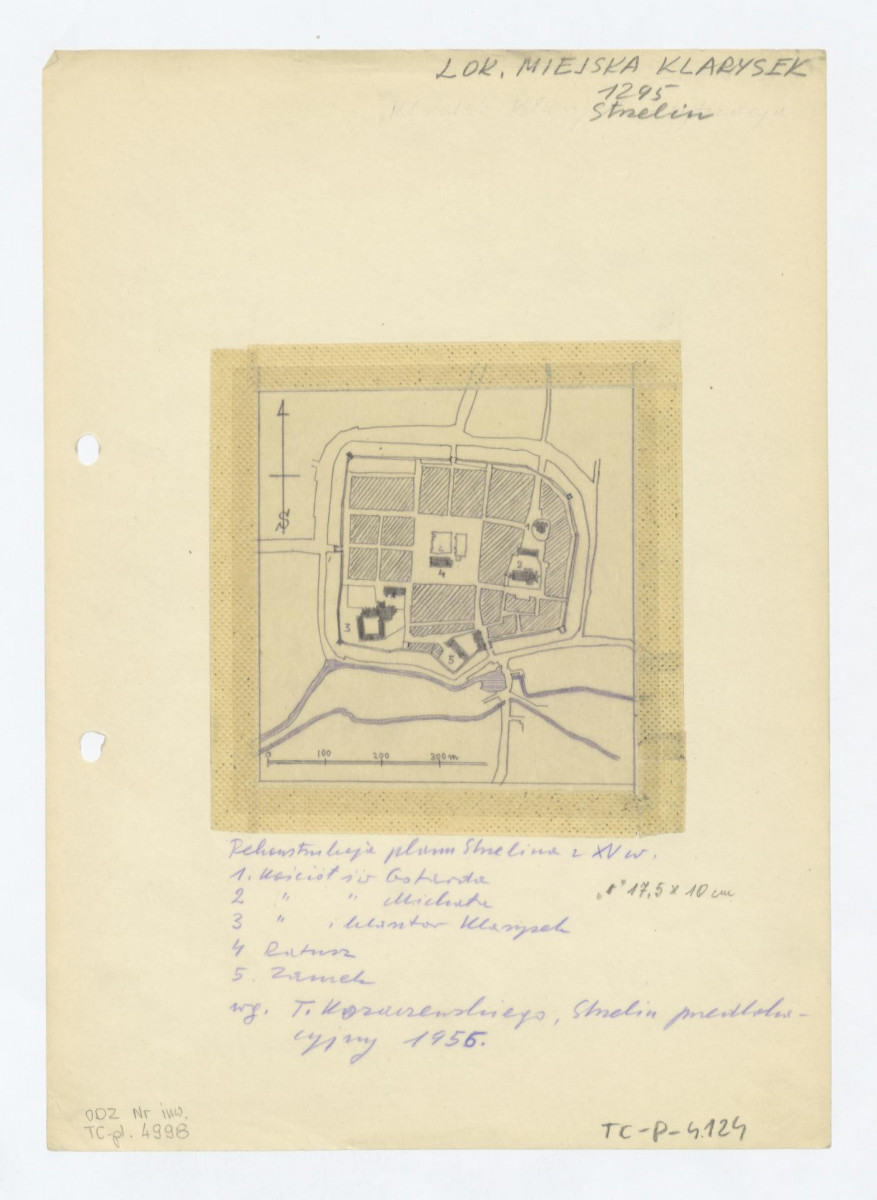 LOK. MIEJSKA KLARYSEK
1295
Strzelin
1
2
4
3
5
0 100 200 300 m
Rekonstrukcja planu Strzelina z XV w.
1. Kościół św Gotarda
2 " " Michała
„1" 17,5 x 10 cm
3 " i klasztor Klarysek
4 Ratusz
5. Zamek
wg. T. Kozaczewskiego, Strzelin przedloka-
cyjny 1955.
ODZ Nr inw.
TC-pl. 4998
TC-P-4124